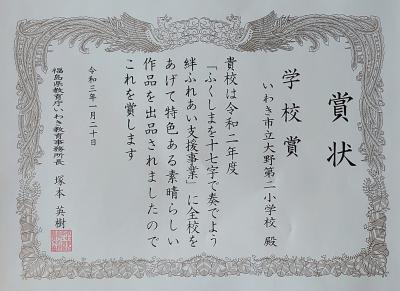 賞状
学校賞
いわき市立大野第二小学校 殿
貴校は令和二年度
「ふくしまを十七字で奏でよう
絆ふれあい支援事業」に全校を
あげて特色ある素晴らしい
作品を出品されましたので
これを賞します
令和三年一月二十日
福島県教育庁いわき教育事務所長 塚本 英樹